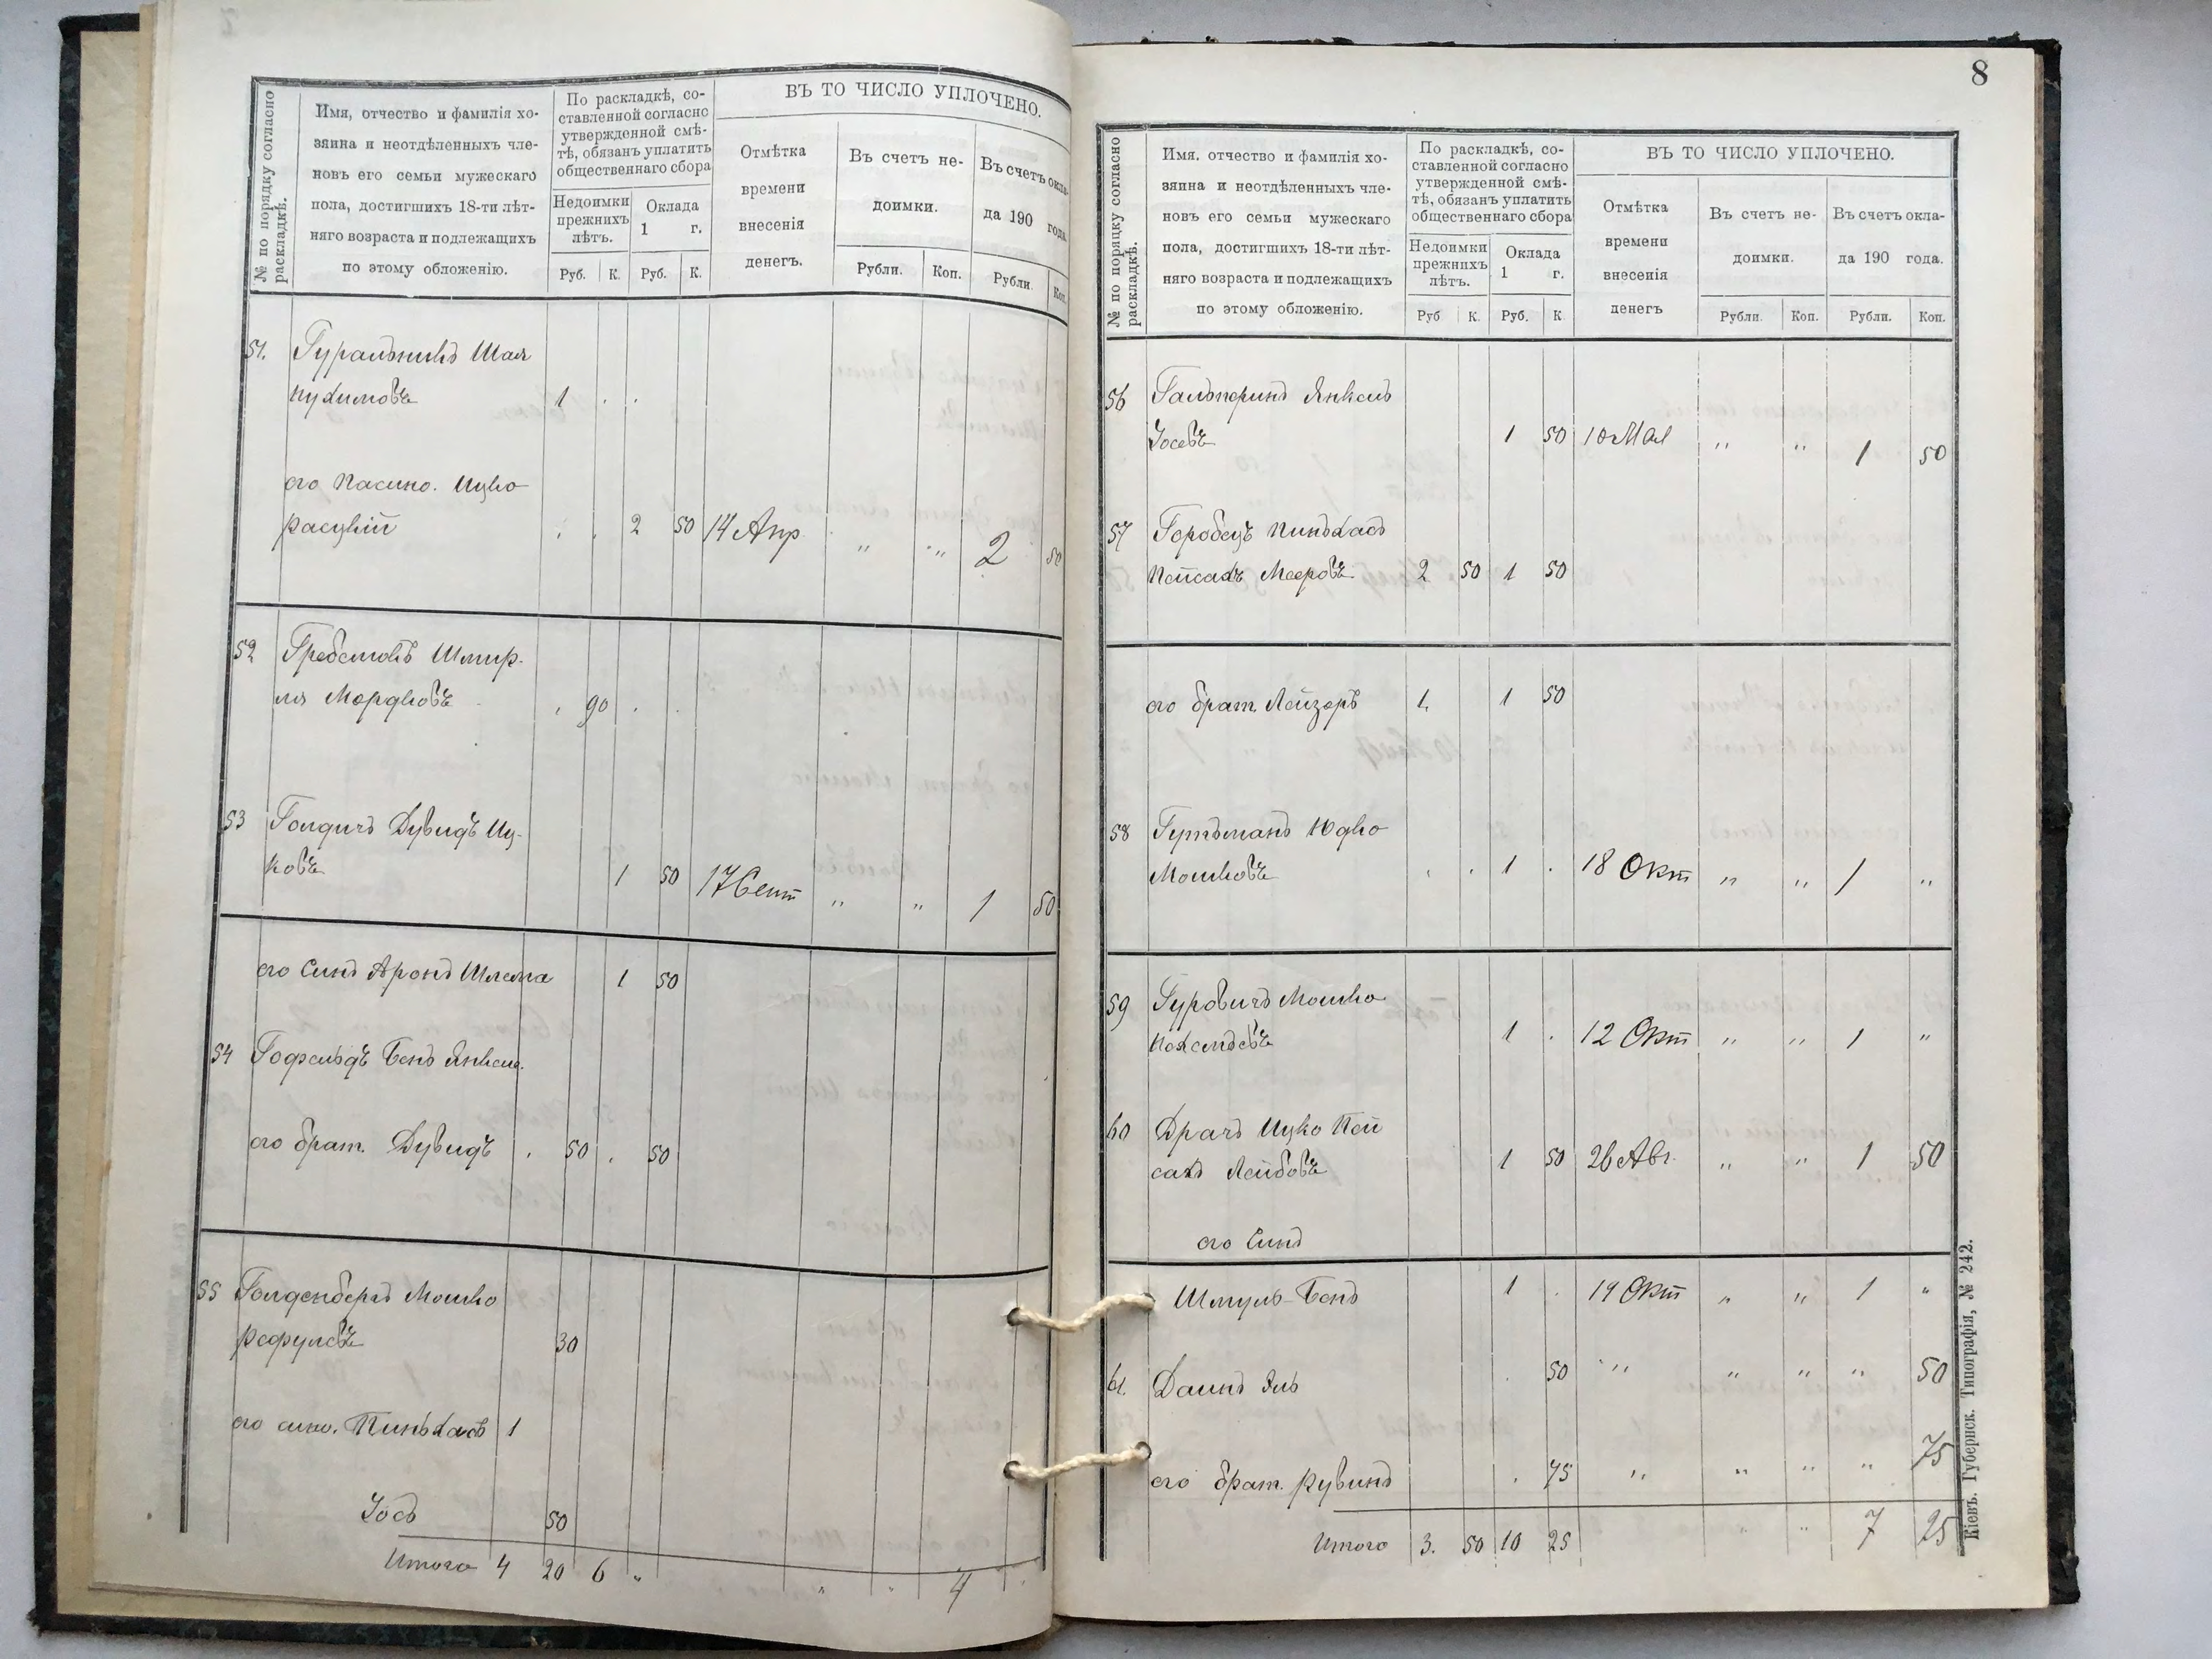 № по порядку согласно раскладкѣ.
Имя, отчество и фамилія хо-
зяина и неотдѣленныхъ чле-
новъ его семьи мужескаго
пола, достигшихъ 18-ти лѣт-
няго возраста и подлежащихъ
по этому обложенію.
По раскладкѣ, со-
ставленной согласно
утвержденной смѣ-
тѣ, обязанъ уплатить
общественнаго сбора
Недоимки
прежнихъ
лѣтъ.
Оклада
1 г.
Руб. К. Руб. К.
ВЪ ТО ЧИСЛО УПЛОЧЕНО.
Отмѣтка
времени
внесенія
денегъ.
Въ счетъ не-
доимки.
Рубли. Коп.
Въ счетъ окла-
да 190 года
Рубли. Коп.
51. Гуральникъ Шая
Нухимовъ 1 . .
его Пасыно. Ицко
Расцкій . . 2 50 14 Апр " " 2 50
52 Гребельовъ Шмир-
ля Мордковъ . 90 . .
53 Голдичъ Дувидъ Иц-
ковъ 1 50 17 Сент " " 1 50
его Сынъ Аронъ Шлема 1 50
54 Гофельдъ Бенъ Янкел.
его брат. Дувидъ . 50 . 50
55 Голденбергъ Мошко
Рефулевъ 30
его сыно. Пинькасъ 1
Іось 50
Итого 4 20 6 " " " 4 .
8
№ по порядку согласно раскладкѣ.
Имя, отчество и фамилія хо-
зяина и неотдѣленныхъ чле-
новъ его семьи мужескаго
пола, достигшихъ 18-ти лѣт-
няго возраста и подлежащихъ
по этому обложенію.
По раскладкѣ, со-
ставленной согласно
утвержденной смѣ-
тѣ, обязанъ уплатить
общественнаго сбора
Недоимки
прежнихъ
лѣтъ.
Оклада
1 г.
Руб К. Руб. К
ВЪ ТО ЧИСЛО УПЛОЧЕНО.
Отмѣтка
времени
внесенія
денегъ
Въ счетъ не-
доимки.
Рубли. Коп.
Въ счетъ окла-
да 190 года.
Рубли. Коп.
56 Гальперинъ Янкель
Іосевъ 1 50 10 Мая " " 1 50
57 Горобецъ Пинькасъ
Пейсахъ Мееровъ 2 50 1 50
его брат. Лейзоръ 1. 1 50
58 Гутьманъ Юдко
Мошковъ . . 1 . 18 Окт " " 1 "
59 Гуровичъ Мошко
Нахемьевъ 1 . 12 Окт " " 1 "
60 Драчъ Ицко Пей
сахъ Лейбовъ 1 50 26 Авг. " " 1 50
его Сынъ
Шмуль-Бенъ 1 . 19 Окт " " 1 "
61. Даинъ Эль . 50 " " " " 50
его брат. Рувинъ . 75 " " " " 75
Итого 3. 50 10 25 " " 7 25
Кіевъ. Губернск. Типографія, № 242.